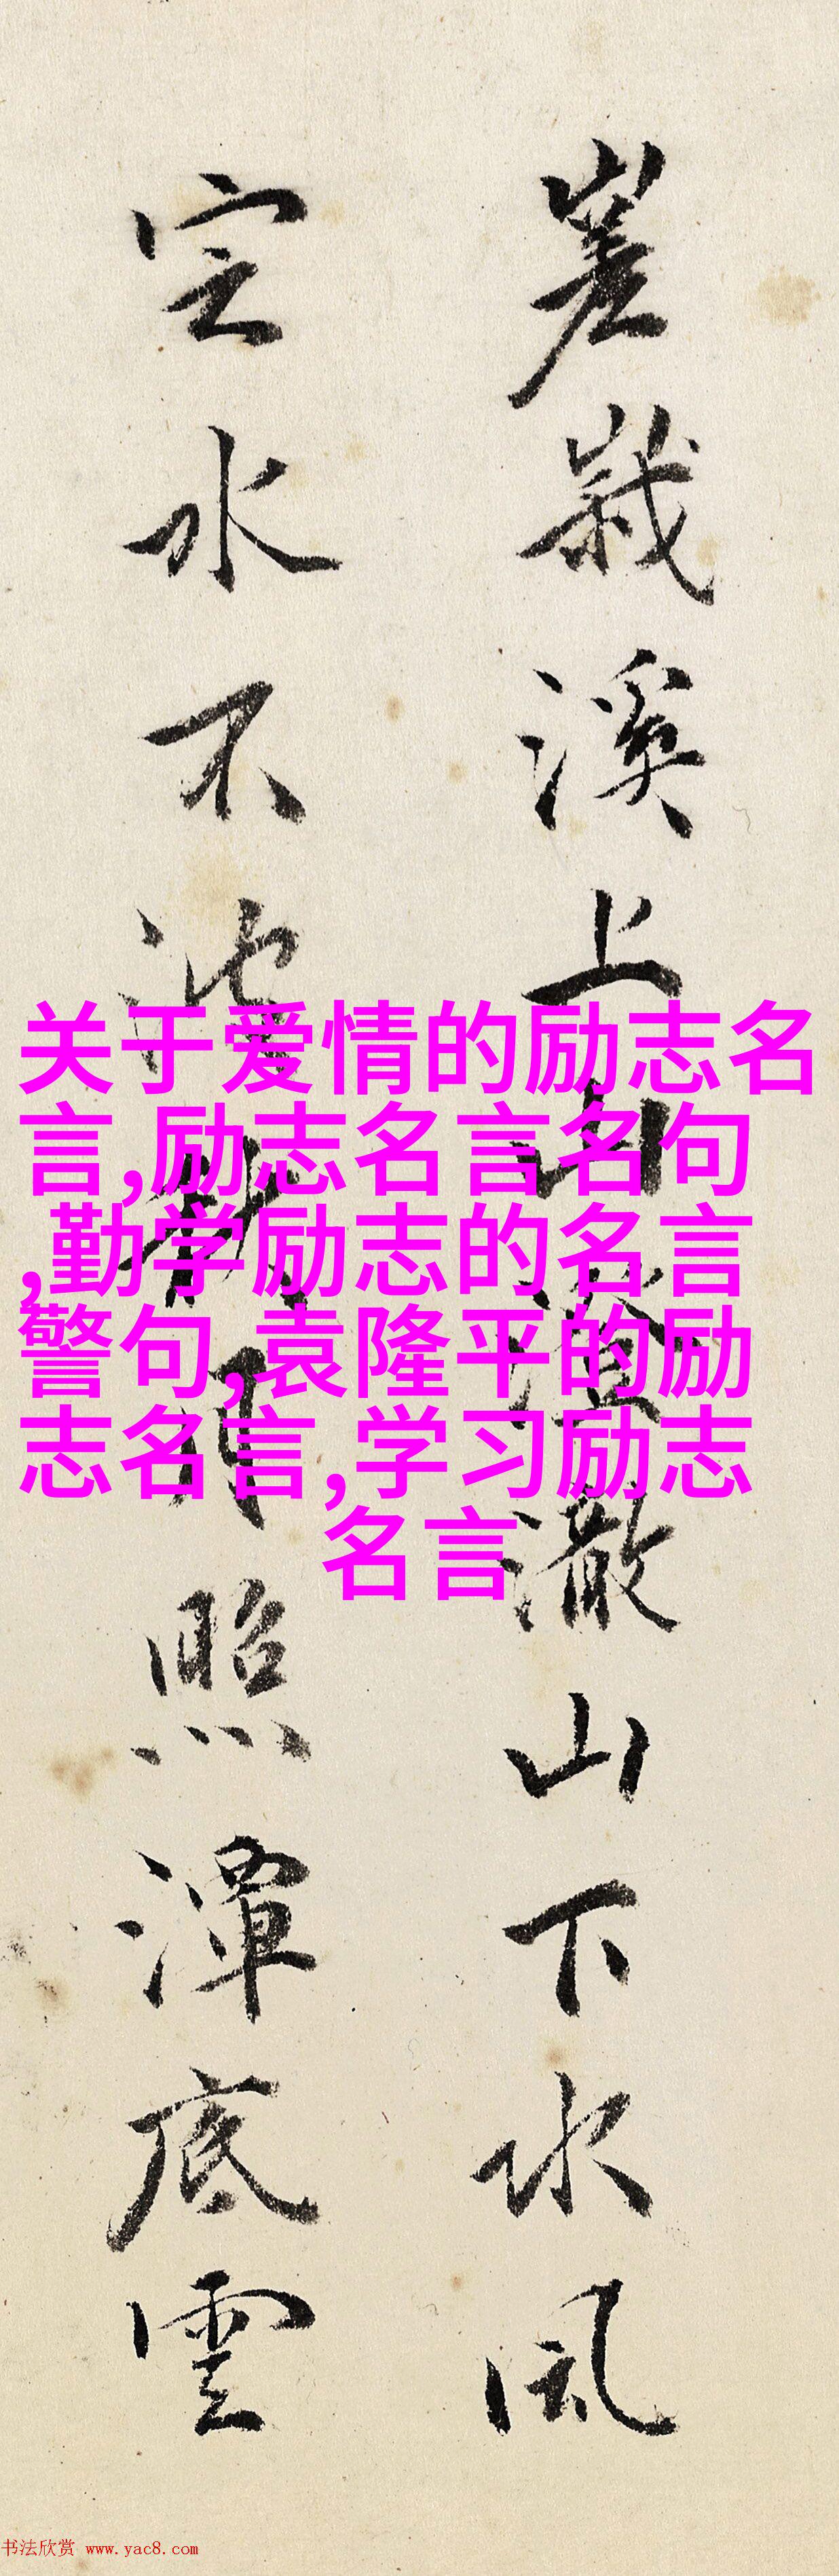 嵳峩溪上山澄澈山下水風
定水不流動月照潭底雲
关于爱情的励志名
言,励志名言名句
,勤学励志的名言
警句,袁隆平的励
志名言,学习励志
名言
书法欣赏 www.yac8.com